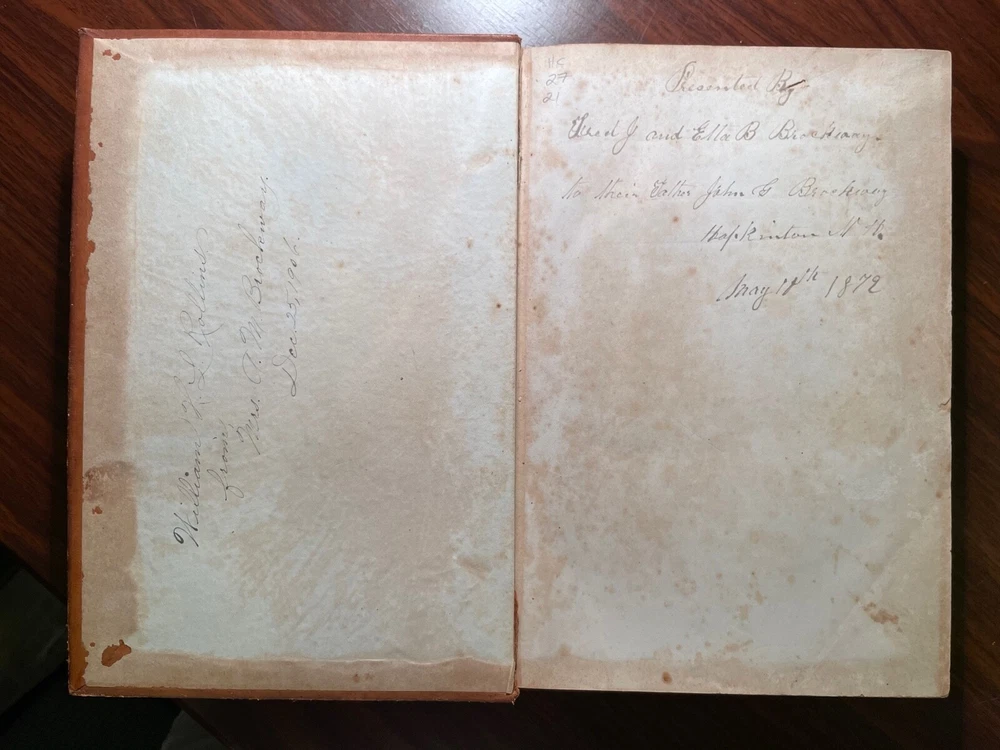 William L Rollins
from
Mrs. A. M. Brockway.
Dec. 25, 1906.
27
21
Presented By
Fred J and Ella B Brockway
to their Father John G Brockway
Hopkinton N H.
May 11th 1872